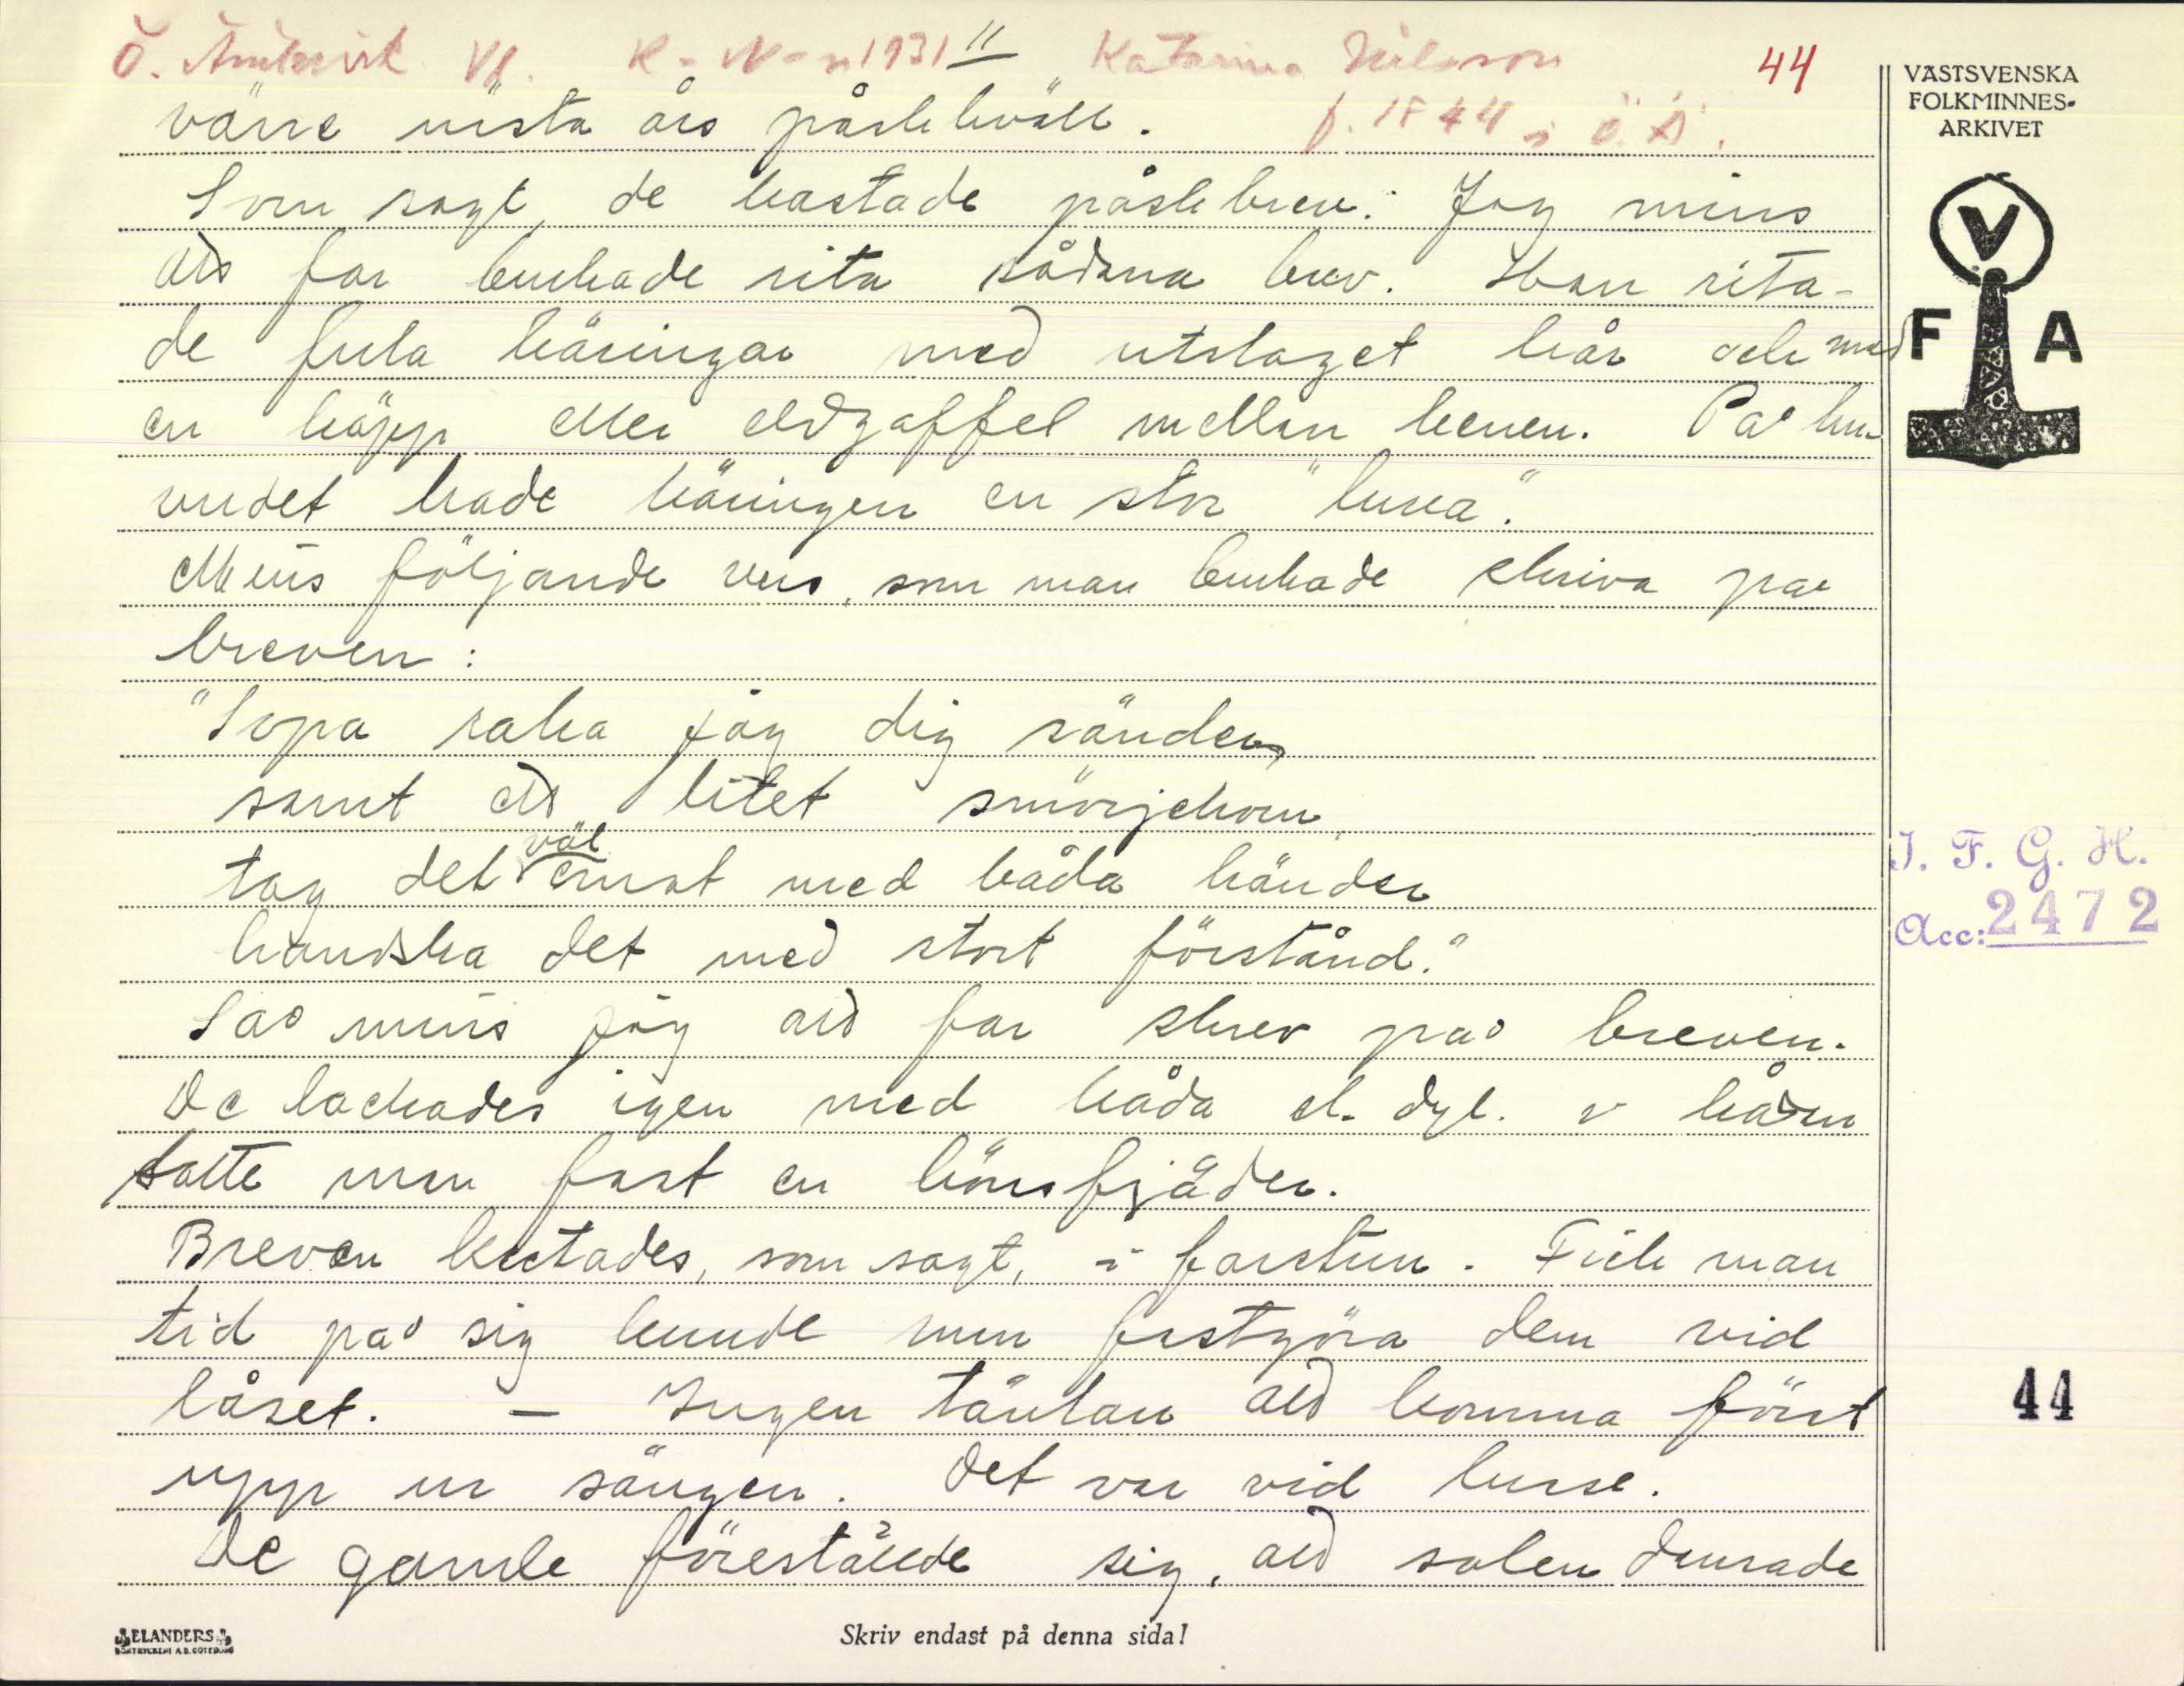 Ö. Ämtervik Vd. K-N-n 1931 11 Katarina Nilsson 44
f. 1844 i Ö.Ä.
värre nästa års påskkväll.
Som sagt, de kastade påskbrev. Jag mins
att far brukade rita sådana brev. Han rita-
de fula käringar med utslaget hår och med
en käpp eller eldgaffel mellan benen. På hu-
vudet hade käringen en stor "luva".
Mins följande vers, som man brukade skriva på
breven:
"Sopa raka jag dig sänder,
samt ett litet smörjehorn,
tag det väl emot med båda händer
handska det med stort förstånd."
Så mins jag att far skrev på breven.
De lackades igen med kåda el. dyl. o kådan
satte man fast en hönsfjäder.
Breven kastades, som sagt, i farstun. Fick man
tid på sig kunde man fastgöra dem vid
låset. — Ingen tävlan att komma först
upp ur sängen. Det var vid lusse.
De gamle förestälde sig, att solen dansade
VÄSTSVENSKA
FOLKMINNES-
ARKIVET
V
F A
I. F. G. H.
Acc: 2472
44
ELANDERS
BOKTRYCKERI A.B. GÖTEBORG
Skriv endast på denna sida!